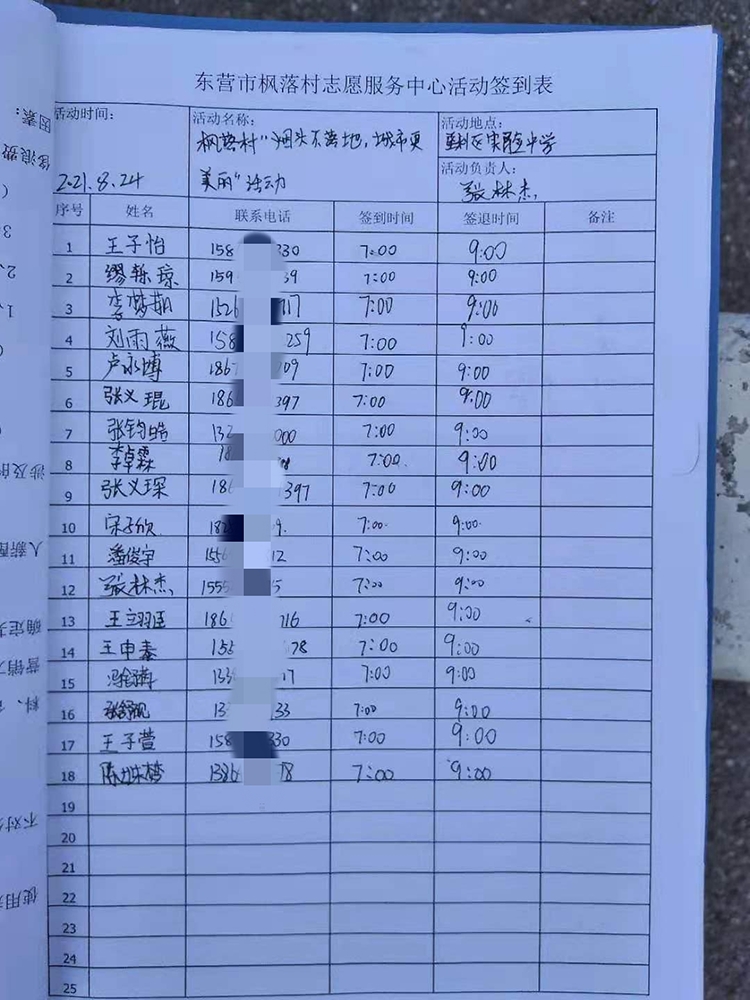 东营市枫落村志愿服务中心活动签到表
活动时间：
2021.8.24
活动名称：
枫落村“烟头不落地，城市更
美丽”活动
活动地点：
垦利区实验中学
活动负责人：
张林杰
序号 姓名 联系电话 签到时间 签退时间 备注
1 王子怡 158 330 7:00 9:00
2 缪轹琼 159 39 7:00 9:00
3 李梦 1526 117 7:00 9:00
4 刘雨薇 158 259 7:00 9:00
5 卢永博 1867 109 7:00 9:00
6 张义琨 186 397 7:00 9:00
7 张钧皓 132 000 7:00 9:00
8 李卓霖 18 7:00 9:00
9 张义琛 186 397 7:00 9:00
10 宋子欣 182 9 7:00 9:00
11 潘俊宇 1556 12 7:00 9:00
12 张林杰 1555 5 7:00 9:00
13 王翊匡 186 716 7:00 9:00
14 王申泰 155 78 7:00 9:00
15 冯 133 17 7:00 9:00
16 张舒 13 33 7:00 9:00
17 王子萱 158 330 7:00 9:00
18 陈 梦 1386 78 7:00 9:00
19
20
21
22
23
24
25
因素：
俭浪费
涉及的
人薪酬
确定
营销
料、
不对
使用